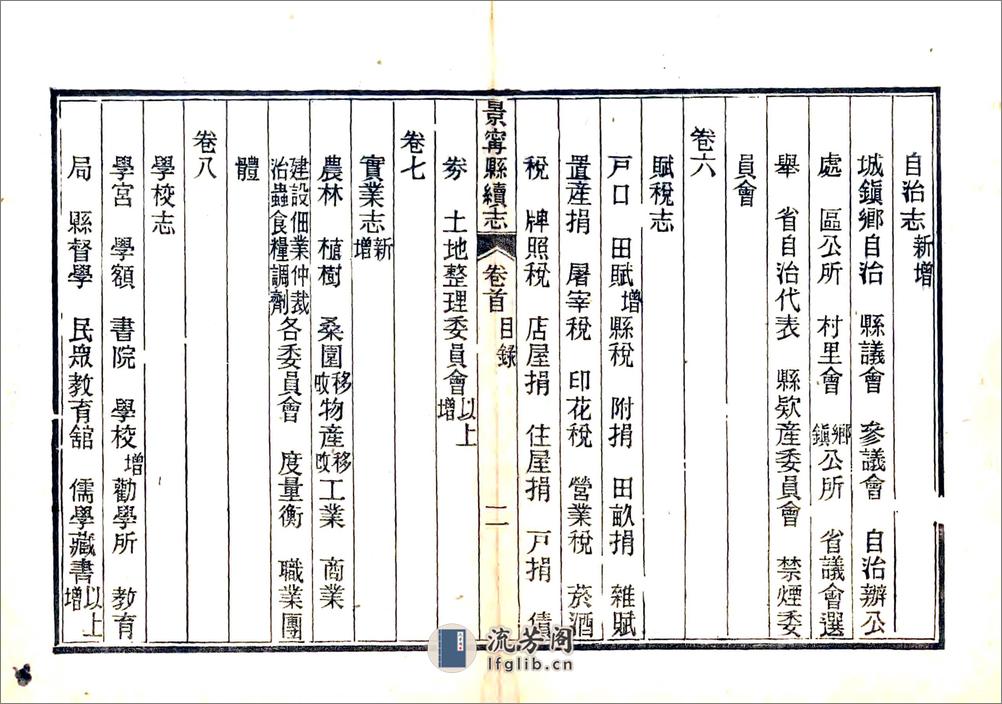 自治志新增
城鎮鄉自治 縣議會 參議會 自治辦公
處 區公所 村里會 鄉鎮公所 省議會選
舉 省自治代表 縣欵產委員會 禁煙委
員會
卷六
賦稅志
戸口 田賦增 縣稅 附捐 田畝捐 雜賦
置產捐 屠宰稅 印花稅 營業稅 菸酒
稅 牌照稅 店屋捐 住屋捐 戸捐 債
景寧縣續志 卷首 目録 二
劵 土地整理委員會以上增
卷七
實業志新增
農林 植樹 桑園移改 物產移改 工業 商業
建設佃業仲裁治蟲食糧調劑各委員會 度量衡 職業團
體
卷八
學校志
學宮 學額 書院 學校增 勸學所 教育
局 縣督學 民眾教育舘 儒學藏書以上增
流芳阁
lfglib.cn